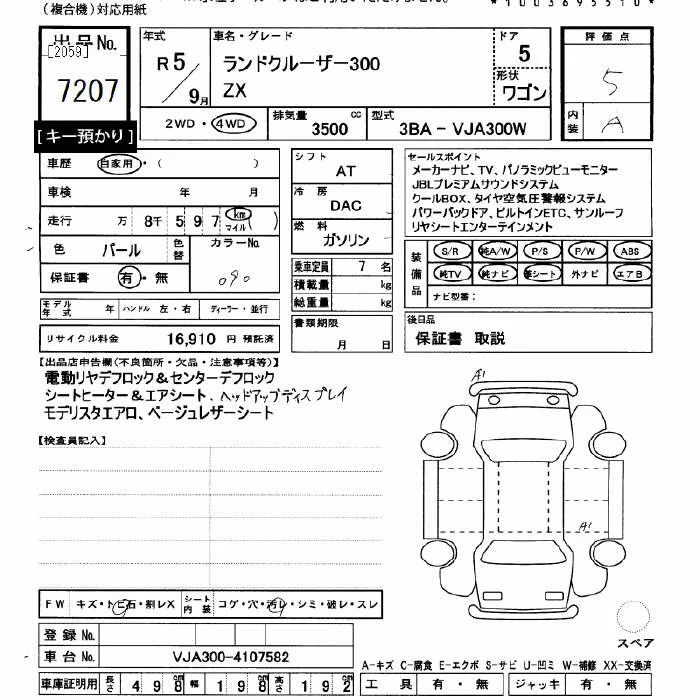 (複合機)対応用紙
*1003695510*
出品No.
[2059]
7207
[キー預かり]
年式
R 5 / 9月
車名・グレード
ランドクルーザー300
ZX
ドア
5
形状
ワゴン
評価点
5
内装
A
2WD・4WD
排気量
3500 cc
型式
3BA - VJA300W
車歴 自家用・( )
車検 年 月
走行 万 8千 5 9 7 km マイル ( )
色 パール 色替 カラーNo.
090
保証書 有・無
シフト
AT
冷房
DAC
燃料
ガソリン
乗車定員 7 名
積載量 kg
総重量 kg
セールスポイント
メーカーナビ、TV、パノラミックビューモニター
JBLプレミアムサウンドシステム
クールBOX、タイヤ空気圧警報システム
パワーバックドア、ビルトインETC、サンルーフ
リヤシートエンターテインメント
装備品
S/R 純A/W P/S P/W ABS
純TV 純ナビ 革シート 外ナビ エアB
ナビ型番:
モデル年式 年 ハンドル 左・右 ディーラー・並行
リサイクル料金 16,910 円 預託済
書類期限
月 日
後日品
保証書 取説
【出品店申告欄(不良箇所・欠品・注意事項等)】
電動リヤデフロック&センターデフロック
シートヒーター&エアシート、ヘッドアップディスプレイ
モデリスタエアロ、ベージュレザーシート
【検査員記入】
A1
A1
FW キズ・トビ石・割レX シート内装 コゲ・穴・汚レ・シミ・破レ・スレ
登録 No.
車台 No. VJA300-4107582
車庫証明用 長さ 4 9 8 cm 幅 1 9 8 cm 高さ 1 9 2 cm
スペア
A-キズ C-腐食 E-エクボ S-サビ U-凹ミ W-補修 XX-交換済
工具 有・無 ジャッキ 有・無